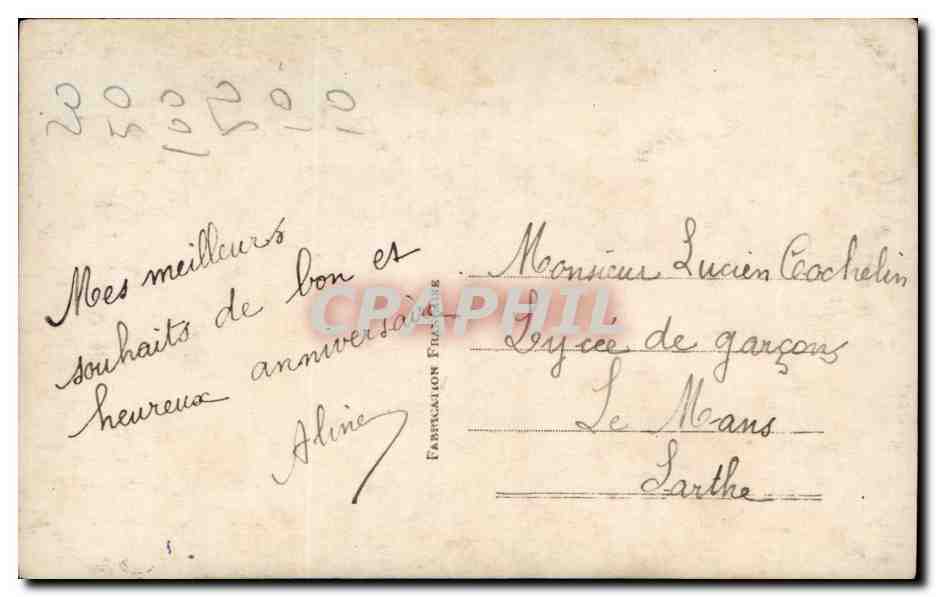 Mes meilleurs
souhaits de bon et
heureux anniversaire
Aline
FABRICATION FRANÇAISE
CPAPHIL
Monsieur Lucien Cochelin
Lycée de garçons
Le Mans
Sarthe